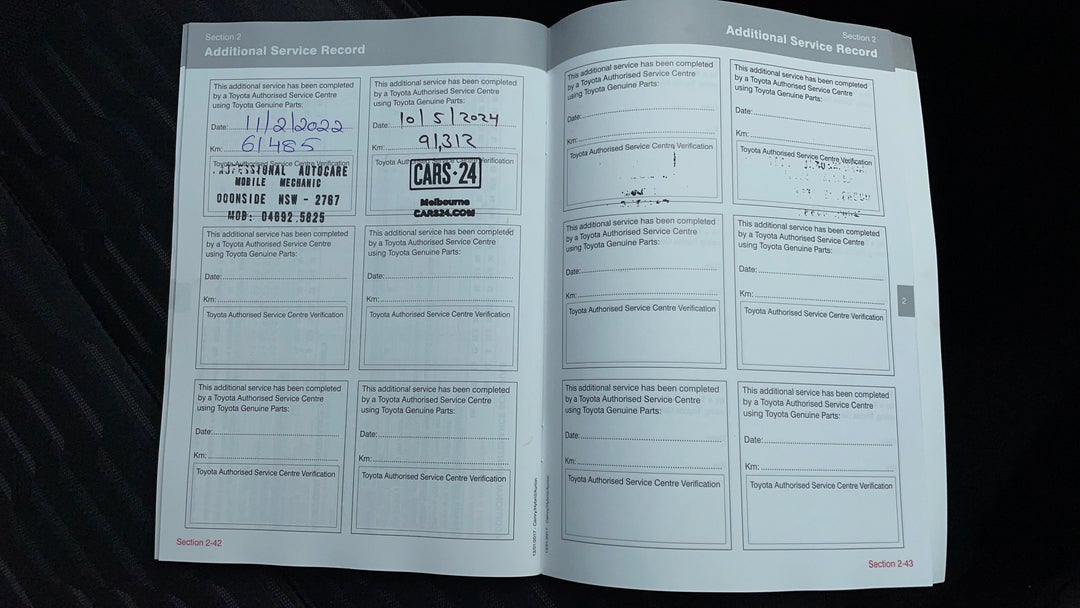 Section 2
Additional Service Record
This additional service has been completed
by a Toyota Authorised Service Centre
using Toyota Genuine Parts:
Date: 11/2/2022
Km: 61485
Toyota Authorised Service Centre Verification
AUTOCARE
MOBILE MECHANIC
DOONSIDE NSW - 2767
MOB: 04892 5825
This additional service has been completed
by a Toyota Authorised Service Centre
using Toyota Genuine Parts:
Date: 10/5/2024
Km: 91,312
Toyota Centre Verification
CARS·24
Melbourne
CARS24.COM
This additional service has been completed
by a Toyota Authorised Service Centre
using Toyota Genuine Parts:
Date:
Km:
Toyota Authorised Service Centre Verification
This additional service has been completed
by a Toyota Authorised Service Centre
using Toyota Genuine Parts:
Date:
Km:
Toyota Authorised Service Centre Verification
This additional service has been completed
by a Toyota Authorised Service Centre
using Toyota Genuine Parts:
Date:
Km:
Toyota Authorised Service Centre Verification
This additional service has been completed
by a Toyota Authorised Service Centre
using Toyota Genuine Parts:
Date:
Km:
Toyota Authorised Service Centre Verification
Section 2-42
Section 2
Additional Service Record
This additional service has been completed
by a Toyota Authorised Service Centre
using Toyota Genuine Parts:
Date:
Km:
Toyota Authorised Service Centre Verification
This additional service has been completed
by a Toyota Authorised Service Centre
using Toyota Genuine Parts:
Date:
Km:
Toyota Authorised Service Centre Verification
This additional service has been completed
by a Toyota Authorised Service Centre
using Toyota Genuine Parts:
Date:
Km:
Toyota Authorised Service Centre Verification
This additional service has been completed
by a Toyota Authorised Service Centre
using Toyota Genuine Parts:
Date:
Km:
Toyota Authorised Service Centre Verification
2
This additional service has been completed
by a Toyota Authorised Service Centre
using Toyota Genuine Parts:
Date:
Km:
Toyota Authorised Service Centre Verification
This additional service has been completed
by a Toyota Authorised Service Centre
using Toyota Genuine Parts:
Date:
Km:
Toyota Authorised Service Centre Verification
Section 2-43